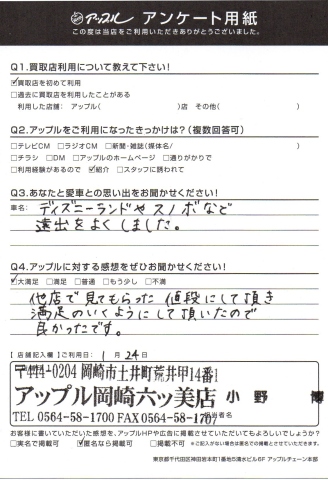 アップル アンケート用紙
この度は当店をご利用いただきありがとうございました。
Q1.買取店利用について教えて下さい!
☑買取店を初めて利用
□過去に買取店を利用したことがある
利用した店舗: アップル( )店 その他( )
Q2.アップルをご利用になったきっかけは?(複数回答可)
□テレビCM □ラジオCM □新聞・雑誌(媒体名/ )
□チラシ □DM □アップルのホームページ □通りがかりで
□利用経験があるので ☑紹介 □スタッフに誘われて
Q3.あなたと愛車との思い出をお聞かせください!
車名: ディズニーランドやスノボなど
遠出をよくしました。
Q4.アップルに対する感想をぜひお聞かせください!
☑大満足 □満足 □普通 □もう少し □不満
他店で見てもらった値段にして頂き
満足のいくようにして頂いたので
良かったです。
【店舗記入欄】ご利用日: 1月24日
〒444-0204 岡崎市土井町荒井甲14番1
アップル岡崎六ッ美店 小野 博
TEL 0564-58-1700 FAX 0564-58-1707 担当者名
お客様に書いていただいた感想を、アップルHPや広告に掲載させていただいてもよろしいでしょうか?
□実名で掲載可 ☑匿名なら掲載可 □掲載不可 ※ご記入がない場合は匿名での掲載とさせていただきます。
東京都千代田区神田岩本町1番地5清水ビル6F アップルチェーン本部